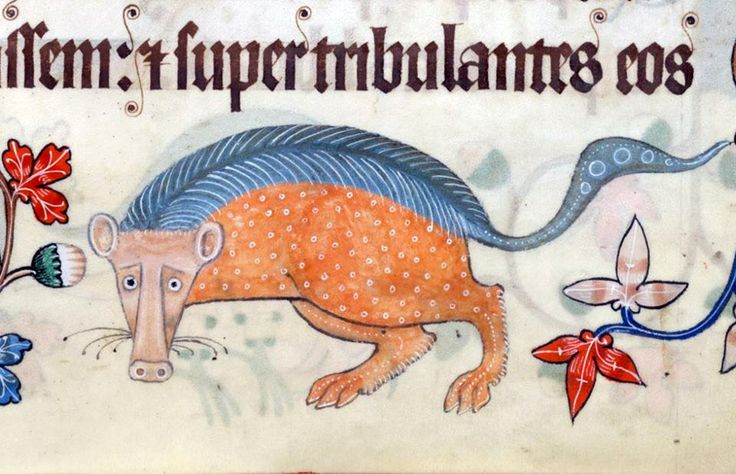 issem: ⁊ super tribulantes eos